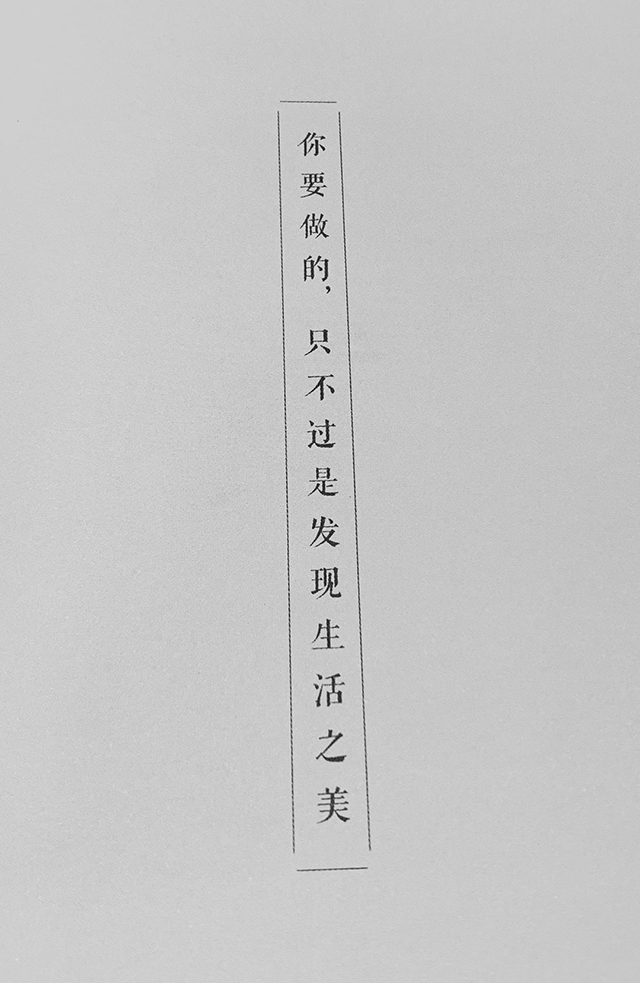 你要做的，只不过是发现生活之美